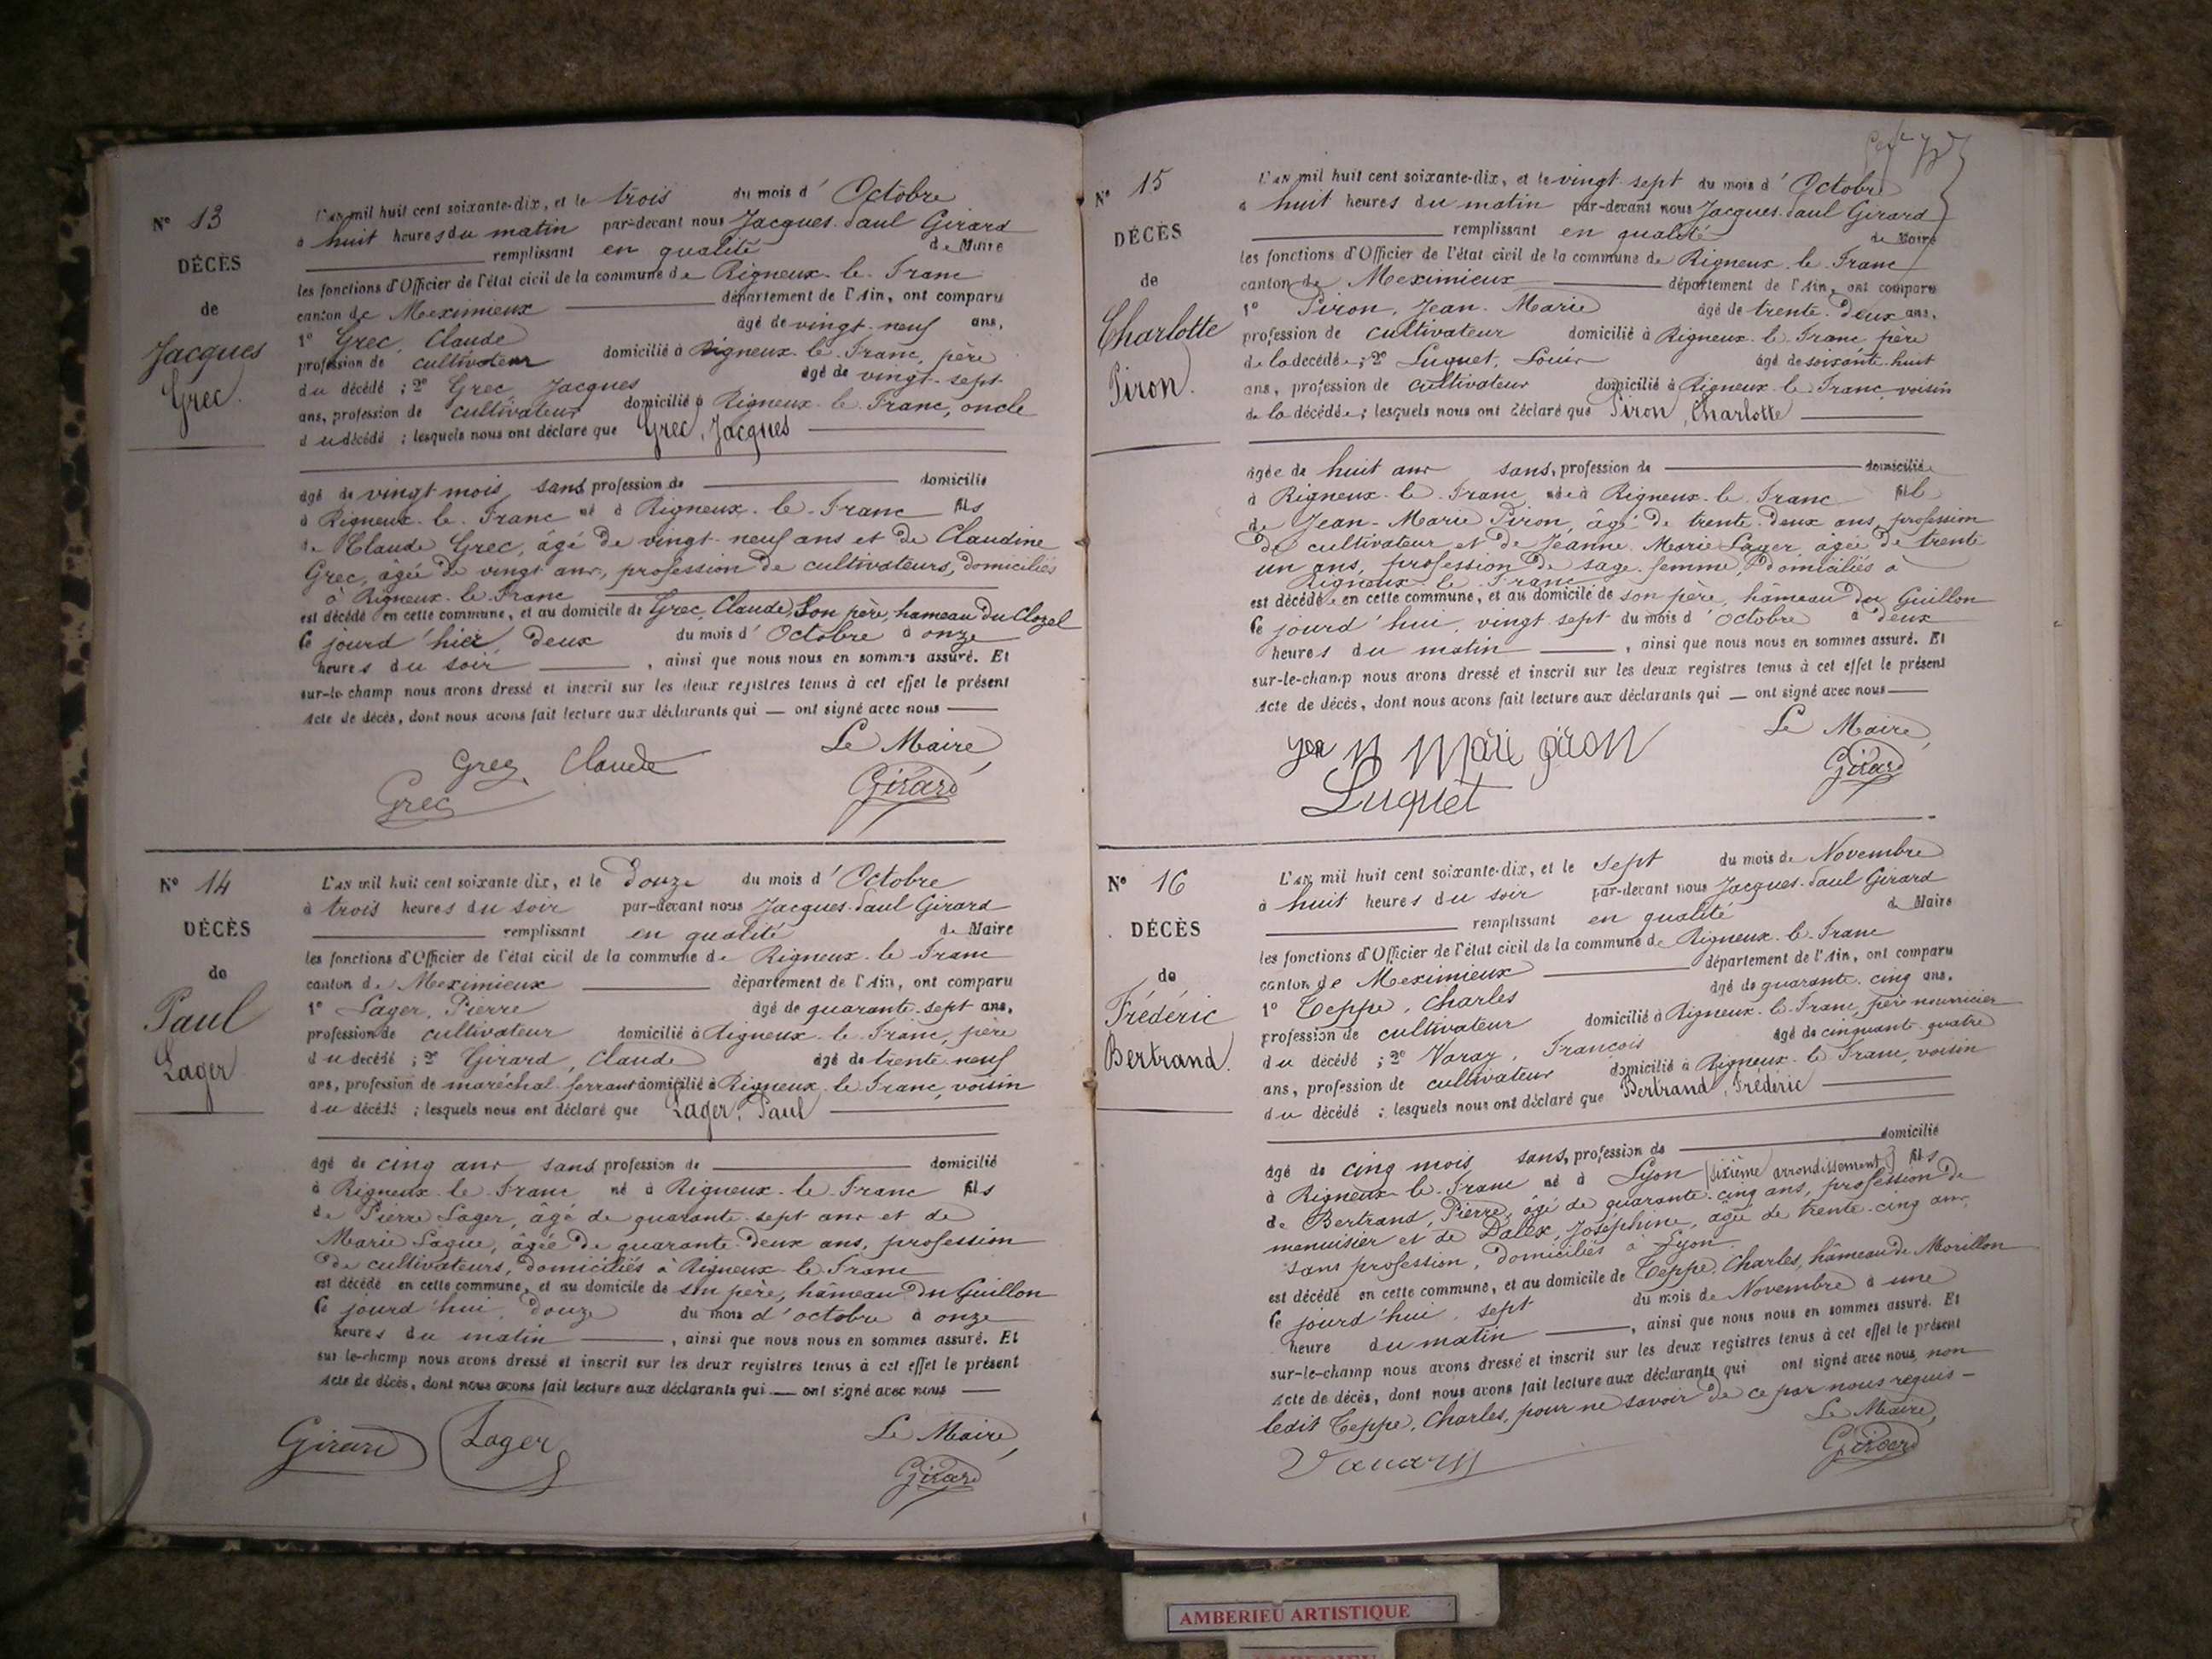 N° 13
DÉCÈS
de
Jacques
Grec.
L'an mil huit cent soixante-dix, et le trois du mois d'Octobre
à huit heures du matin par-devant nous Jacques-Paul Girard
remplissant en qualité de Maire
les fonctions d'Officier de l'état civil de la commune de Rigneux-le-Franc
canton de Meximieux département de l'Ain, ont comparu
1° Grec, Claude âgé de vingt-neuf ans,
profession de cultivateur domicilié à Rigneux-le-Franc, père
du décédé ; 2° Grec, Jacques âgé de vingt-sept
ans, profession de cultivateur domicilié à Rigneux-le-Franc, oncle
du décédé ; lesquels nous ont déclaré que Grec, Jacques
âgé de vingt mois, sans profession de domicilié
à Rigneux-le-Franc né à Rigneux-le-Franc fils
de Claude Grec, âgé de vingt-neuf ans et de Claudine
Grec, âgée de vingt ans, profession de cultivateurs, domiciliés
à Rigneux-le-Franc
est décédé en cette commune, et au domicile de Grec, Claude, Son père, hameau du Clozel
ce jourd'hier, deux du mois d'Octobre à onze
heures du soir, ainsi que nous nous en sommes assuré. Et
sur-le-champ nous avons dressé et inscrit sur les deux registres tenus à cet effet le présent
acte de décès, dont nous avons fait lecture aux déclarants qui — ont signé avec nous —
Grec Claude
Le Maire,
Grec
Girard
N° 14
DÉCÈS
de
Paul
Lager
L'an mil huit cent soixante-dix, et le douze du mois d'Octobre
à trois heures du soir par-devant nous Jacques-Paul Girard
remplissant en qualité de Maire
les fonctions d'Officier de l'état civil de la commune de Rigneux-le-Franc
canton de Meximieux département de l'Ain, ont comparu
1° Lager, Pierre âgé de quarante-sept ans,
profession de cultivateur domicilié à Rigneux-le-Franc, père
du décédé ; 2° Girard, Claude âgé de trente-neuf
ans, profession de maréchal-ferrant domicilié à Rigneux-le-Franc, voisin
du décédé ; lesquels nous ont déclaré que Lager, Paul
âgé de cinq ans, sans profession de domicilié
à Rigneux-le-Franc né à Rigneux-le-Franc fils
de Pierre Lager, âgé de quarante-sept ans et de
Marie Lague, âgée de quarante-deux ans, profession
de cultivateurs, domiciliés à Rigneux-le-Franc
est décédé en cette commune, et au domicile de son père, hâmeau du Guillon
ce jourd'hui, douze du mois d'octobre à onze
heures du matin, ainsi que nous nous en sommes assuré. Et
sur-le-champ nous avons dressé et inscrit sur les deux registres tenus à cet effet le présent
acte de décès, dont nous avons fait lecture aux déclarants qui — ont signé avec nous —
Girard Lager
Le Maire,
Girard
N° 15
DÉCÈS
de
Charlotte
Piron.
L'an mil huit cent soixante-dix, et le vingt-sept du mois d'Octobre
à huit heures du matin par-devant nous Jacques-Paul Girard
remplissant en qualité de Maire
les fonctions d'Officier de l'état civil de la commune de Rigneux-le-Franc
canton de Meximieux département de l'Ain, ont comparu
1° Piron, Jean-Marie âgé de trente-deux ans,
profession de cultivateur domicilié à Rigneux-le-Franc père
de la décédée ; 2° Luquet, Louis âgé de soixante-huit
ans, profession de cultivateur domicilié à Rigneux-le-Franc, voisin
de la décédée ; lesquels nous ont déclaré que Piron, Charlotte
âgée de huit ans sans, profession de domicilié
à Rigneux-le-Franc née à Rigneux-le-Franc fille
de Jean-Marie Piron, âgé de trente-deux ans, profession
de cultivateur et de Jeanne-Marie Lager, âgée de trente
un ans, profession de sage-femme, domiciliés à
Rigneux-le-Franc
est décédée en cette commune, et au domicile de son père, hâmeau du Guillon
ce jourd'hui, vingt-sept du mois d'Octobre à deux
heures du matin, ainsi que nous nous en sommes assuré. Et
sur-le-champ nous avons dressé et inscrit sur les deux registres tenus à cet effet le présent
acte de décès, dont nous avons fait lecture aux déclarants qui — ont signé avec nous —
Le Maire,
Mari piron
Luquet
Girard
N° 16
DÉCÈS
de
Frédéric
Bertrand.
L'an mil huit cent soixante-dix, et le sept du mois de Novembre
à huit heures du soir par-devant nous Jacques-Paul Girard
remplissant en qualité de Maire
les fonctions d'Officier de l'état civil de la commune de Rigneux-le-Franc
canton de Meximieux département de l'Ain, ont comparu
1° Teppe, Charles âgé de quarante-cinq ans,
profession de cultivateur domicilié à Rigneux-le-Franc, père nourricier
du décédé ; 2° Varay, François âgé de cinquante-quatre
ans, profession de cultivateur domicilié à Rigneux-le-Franc, voisin
du décédé ; lesquels nous ont déclaré que Bertrand, Frédéric
âgé de cinq mois, sans, profession de domicilié
à Rigneux-le-Franc né à Lyon (sixième arrondissement) fils
de Bertrand, Pierre, âgé de quarante-cinq ans, profession de
menuisier et de Dalex, Joséphine, âgée de trente-cinq ans,
sans profession, domiciliés à Lyon.
est décédé en cette commune, et au domicile de Teppe, Charles, hâmeau de Morillon
ce jourd'hui, sept du mois de Novembre à une
heure du matin, ainsi que nous nous en sommes assuré. Et
sur-le-champ nous avons dressé et inscrit sur les deux registres tenus à cet effet le présent
acte de décès, dont nous avons fait lecture aux déclarants qui ont signé avec nous, non
ledit Teppe, Charles, pour ne savoir de ce par nous requis —
Le Maire,
Girard
AMBERIEU ARTISTIQUE